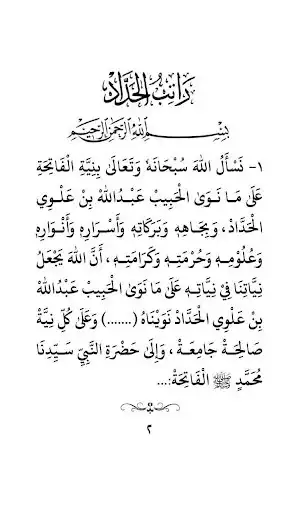 رَاتِبُ الْحَدَّادْ
بِسْمِ اللهِ الرَّحْمٰنِ الرَّحِيْمِ
١- نَسْأَلُ اللهَ سُبْحَانَهُ وَتَعَالَى بِنِيَّةِ الْفَاتِحَةِ
عَلَى مَا نَوَى الْحَبِيبْ عَبْدُاللهِ بِنْ عَلْوِي
الْحَدَّادْ، وَبِجَاهِهِ وَبَرَكَاتِهِ وَأَسْرَارِهِ وَأَنْوَارِهِ
وَعُلُومِهِ وَحُرْمَتِهِ وَكَرَامَتِهِ، أَنَّ اللهَ يَجْعَلُ
نِيَّاتِنَا فِي نِيَّاتِهِ عَلَى مَا نَوَى الْحَبِيبْ عَبْدُاللهِ
بِنْ عَلْوِي الْحَدَّادْ نَوَيْنَاهُ (.......) وَعَلَى كُلِّ نِيَّةٍ
صَالِحَةٍ جَامِعَةٍ، وَإِلَىٰ حَضْرَةِ النَّبِيِّ سَيِّدِنَا
مُحَمَّدٍ ﷺ الْفَاتِحَةْ:...
٢